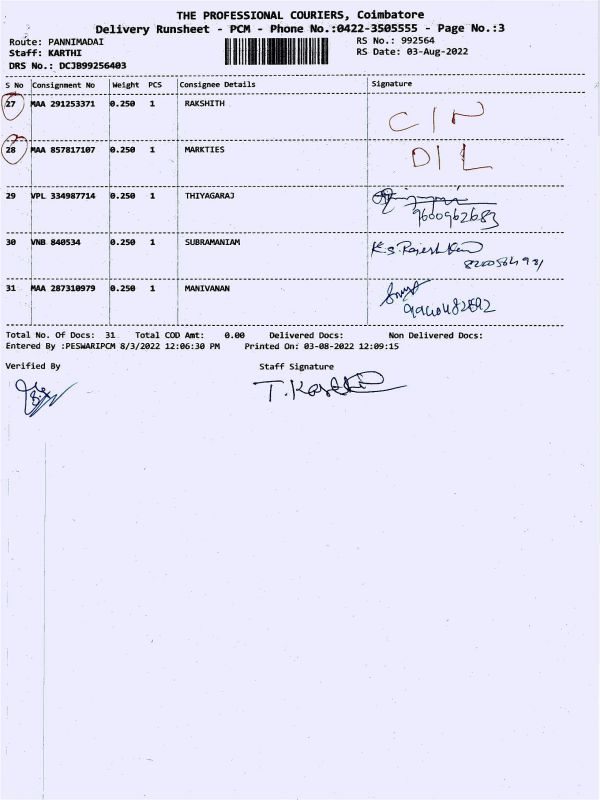 THE PROFESSIONAL COURIERS, Coimbatore
Delivery Runsheet - PCM - Phone No.:0422-3505555 - Page No.:3
Route: PANNIMADAI
RS No.: 992564
Staff: KARTHI
RS Date: 03-Aug-2022
DRS No.: DCJB99256403
S No Consignment No Weight PCS Consignee Details Signature
27 MAA 291253371 0.250 1 RAKSHITH CIN
28 MAA 857817107 0.250 1 MARKTIES DIL
29 VPL 334987714 0.250 1 THIYAGARAJ
9600962683
30 VNB 840534 0.250 1 SUBRAMANIAM K.S. Rajesh
31 MAA 287310979 0.250 1 MANIVANAN
Total No. Of Docs: 31 Total COD Amt: 0.00 Delivered Docs: Non Delivered Docs:
Entered By :PESWARIPCM 8/3/2022 12:06:30 PM Printed On: 03-08-2022 12:09:15
Verified By Staff Signature
T. Karthi